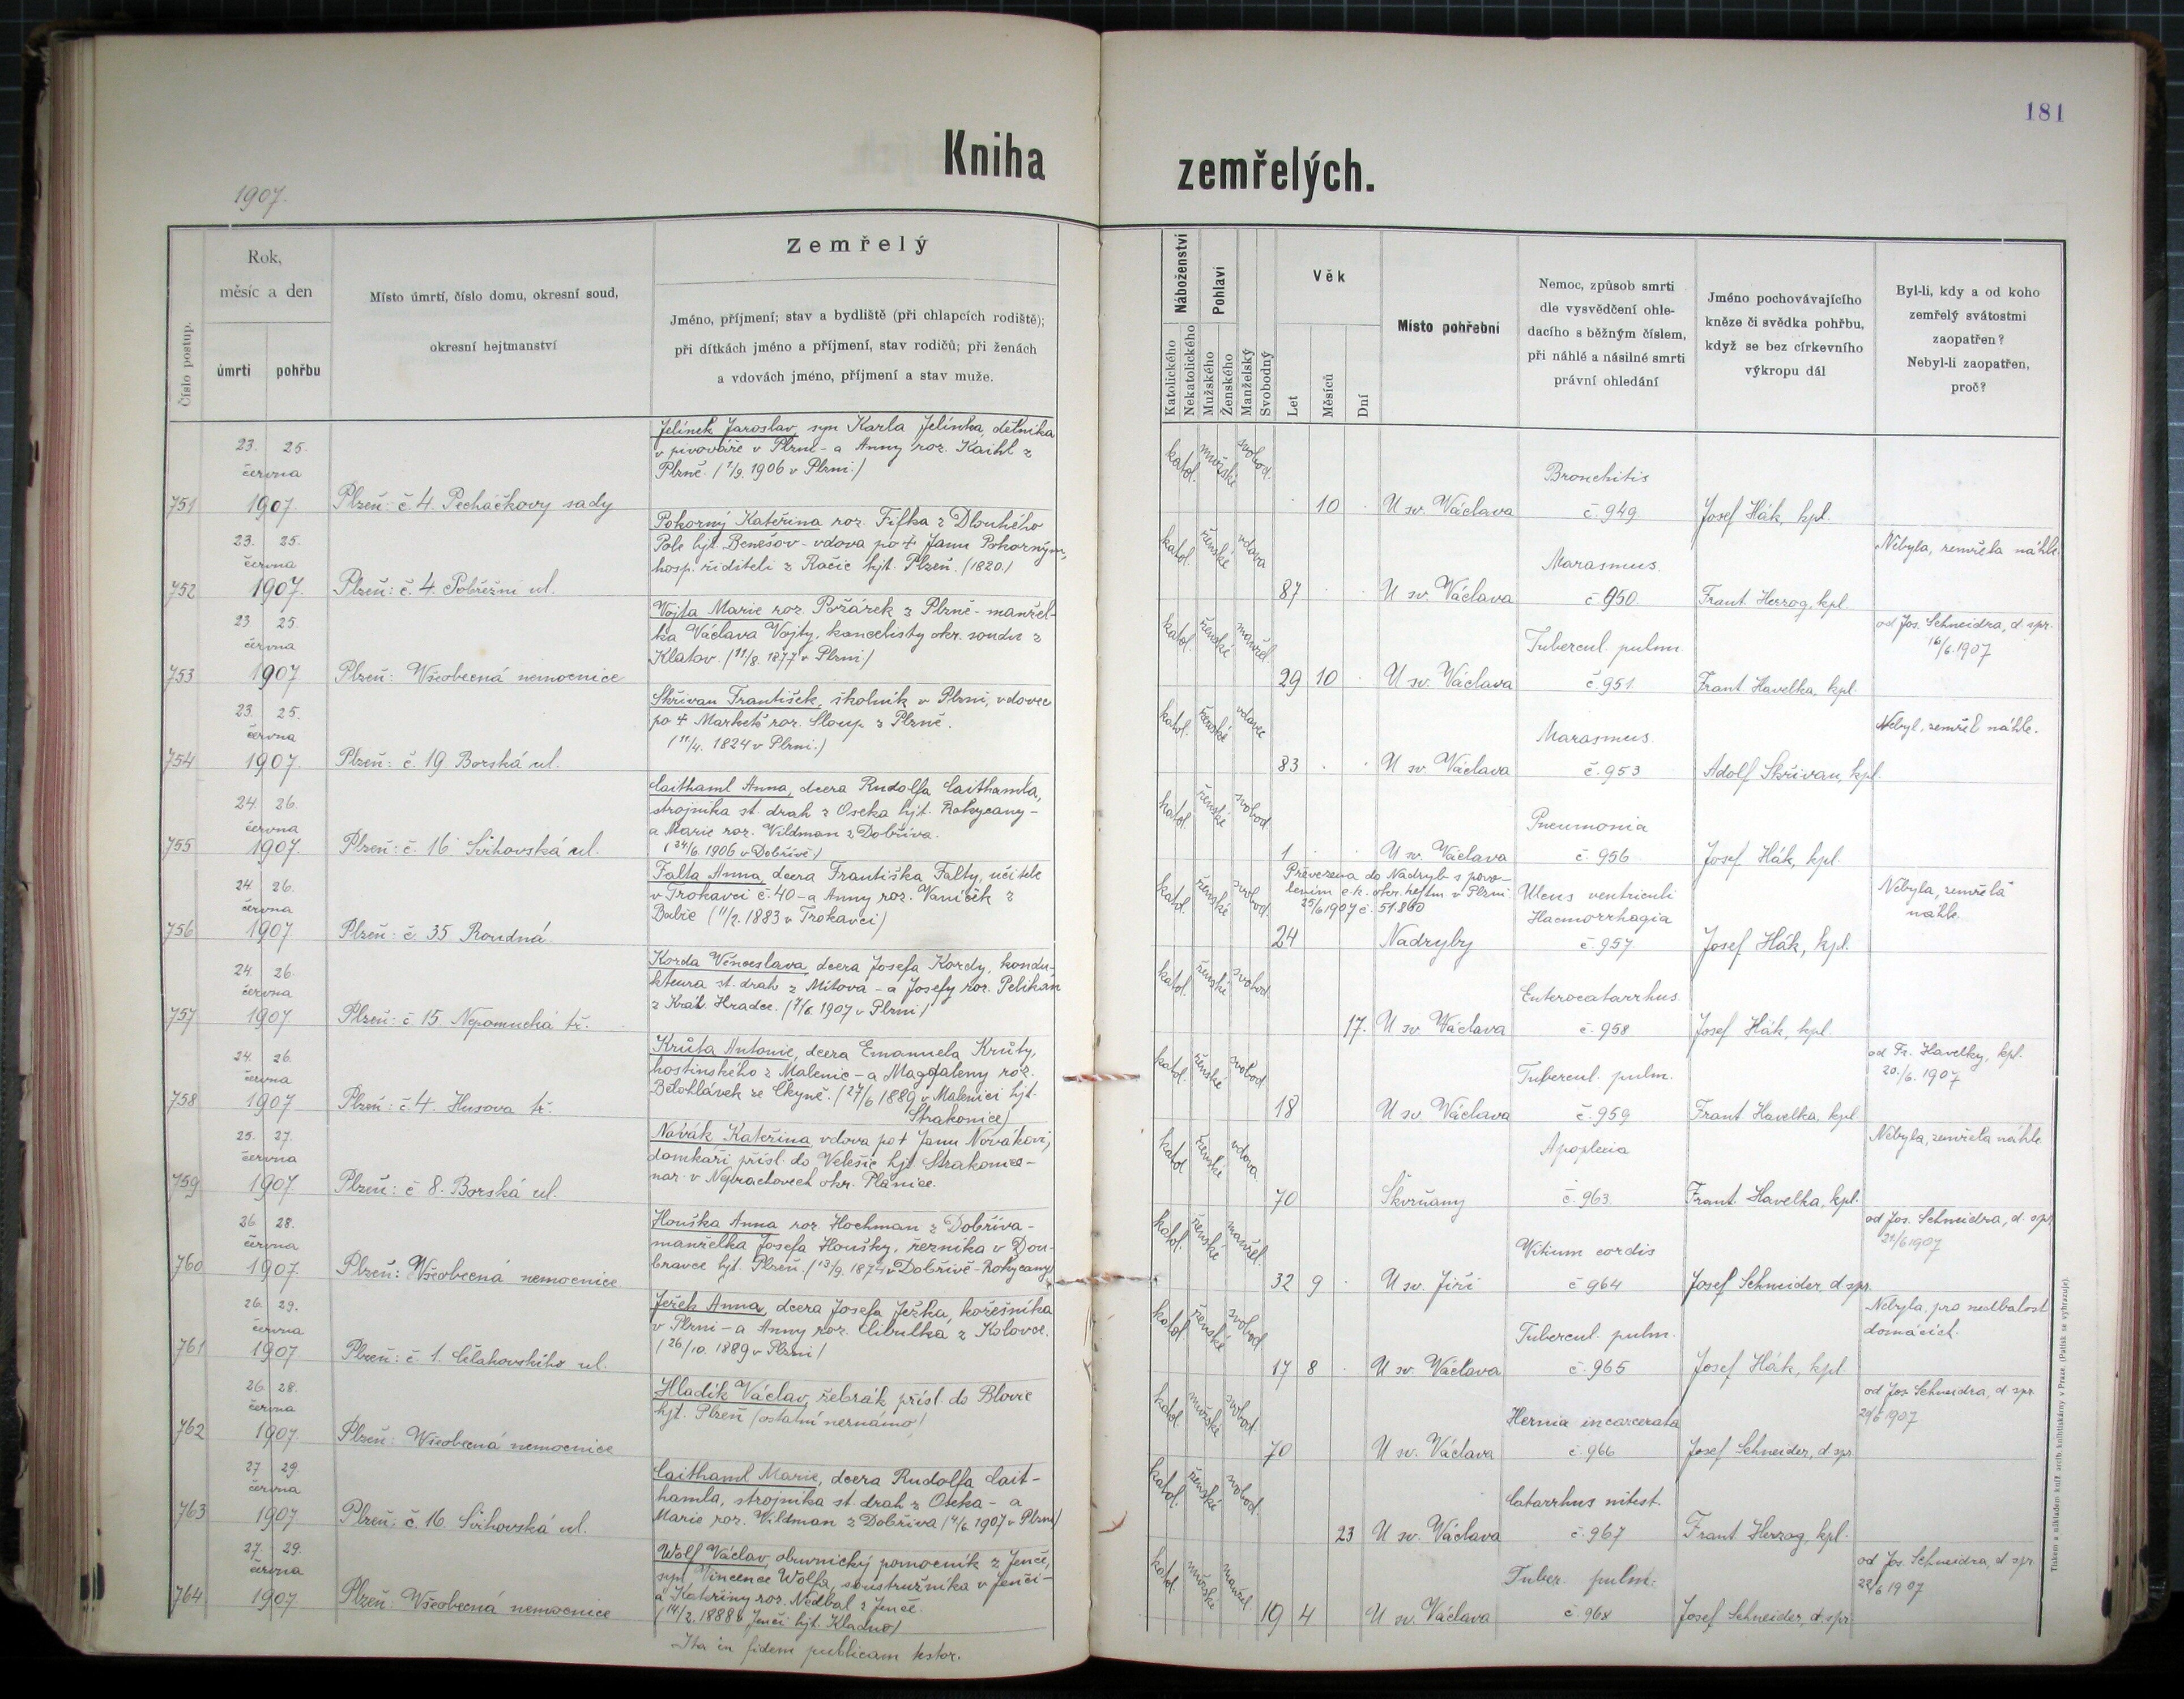 181
Kniha zemřelých.
1907.
Číslo postup.
Rok,
měsíc a den
úmrtí
pohřbu
Místo úmrtí, číslo domu, okresní soud,
okresní hejtmanství
Zemřelý
Jméno, příjmení; stav a bydliště (při chlapcích rodiště);
při dítkách jméno a příjmení, stav rodičů; při ženách
a vdovách jméno, příjmení a stav muže.
Náboženství
Katolického
Nekatolického
Pohlaví
Mužského
Ženského
Manželský
Svobodný
Věk
Let
Měsíců
Dní
Místo pohřební
Nemoc, způsob smrti
dle vysvědčení ohle-
dacího s běžným číslem,
při náhlé a násilné smrti
právní ohledání
Jméno pochovávajícího
kněze či svědka pohřbu,
když se bez církevního
výkropu dál
Byl-li, kdy a od koho
zemřelý svátostmi
zaopatřen?
Nebyl-li zaopatřen,
proč?
751
23. 25.
června
1907.
Plzeň: č. 4 Pecháčkovy sady
Jelínek Jaroslav, syn Karla Jelínka, dělníka
v pivováře v Plzni - a Anny roz. Kaihl z
Plzně. (1/9. 1906 v Plzni.)
katol. mužské svobod.
10
U sv. Václava
Bronchitis
č. 949.
Josef Hák, kpl.
752
23. 25.
června
1907.
Plzeň: č. 4. Pobřežní ul.
Pokorný Kateřina roz. Fifka z Dlouhého
Pole hjt. Benešov - vdova po + Janu Pokorným,
hosp. řiditeli z Račic hjt. Plzeň. (1820.)
katol. ženské vdova
87
U sv. Václava
Marasmus.
č. 950.
Frant. Herzog, kpl.
Nebyla, zemřela náhle.
753
23 25.
června
1907
Plzeň: Všeobecná nemocnice
Vojta Marie roz. Požárek z Plzně - manžel-
ka Václava Vojty, kancelisty okr. soudu z
Klatov. (11/8. 1877 v Plzni)
katol. ženské manžel.
29 10
U sv. Václava
Tubercul. pulm.
č. 951.
Frant Havelka, kpl.
od Jos. Schneidra, d. spr.
16/6. 1907
754
23. 25.
června
1907.
Plzeň: č. 19 Borská ul.
Skřivan František, školník v Plzni, vdovec
po + Marketě roz. Sloup z Plzně.
(11/4. 1824 v Plzni.)
katol. ženské vdovec
83
U sv. Václava
Marasmus.
č. 953
Adolf Skřivan, kpl.
Nebyl, zemřel náhle.
755
24. 26.
června
1907.
Plzeň: č. 16 Švihovská ul.
Caithaml Anna, dcera Rudolfa Caithamla,
strojníka st. drah z Oseka hjt. Rokycany -
a Marie roz. Vildman z Dobříva.
(24/6. 1906 v Dobřívě)
katol. ženské svobod.
1
U sv. Václava
Pneumonia
č. 956
Josef Hák, kpl.
756
24 26.
června
1907
Plzeň: č 35 Roudná.
Falta Anna, dcera Františka Falty, učitele
v Trokavci č. 40 - a Anny roz. Vaníček z
Babic (11/2. 1883 v Trokavci)
katol. ženské svobod.
Převezena do Nadryb s povo-
lením c. k. okr. hejtm. v Plzni
25/6 1907 č. 51.860
24
Nadryby
Ulcus ventriculi
Haemorrhagia
č. 957
Josef Hák, kpl.
Nebyla, zemřela
náhle.
757
24 26.
června
1907
Plzeň: č 15. Nepomucká tř.
Korda Věnceslava, dcera Josefa Kordy, kondu-
ktéura st. drah z Mítova - a Josefy roz. Pelikán
z Král. Hradce. (7/6. 1907 v Plzni)
katol. ženské svobod.
17.
U sv. Václava
Enterocatarrhus.
č. 958
Josef Hák, kpl.
758
24. 26.
června
1907
Plzeň: č. 4. Husova tř.
Krůta Antonie, dcera Emanuela Krůty,
hostinského z Malenic - a Magdaleny roz.
Bělohlávek ze Čkyně. (27/6 1889 v Malenici hjt.
Strakonice)
katol. ženské svobod.
18
U sv. Václava
Tubercul. pulm.
č. 959
Frant Havelka, kpl
od Fr. Havelky, kpl.
20./6. 1907
759
25. 27.
června
1907
Plzeň: č 8. Borská ul.
Novák Kateřina, vdova po + Janu Novákovi,
domkáři přísl. do Velešic hjt. Strakonice -
nar. v Neprachovech okr. Plánice.
katol. ženské vdova.
70
Škvrňany
Apoplexia
č. 963.
Frant. Havelka, kpl.
Nebyla, zemřela náhle
760
26 28.
června
1907.
Plzeň: Všeobecná nemocnice
Houška Anna roz. Hochman z Dobříva -
manželka Josefa Houšky, řezníka v Dou-
bravce hjt. Plzeň. (13/9. 1874 v Dobřívě - Rokycany)
katol. ženské manžel.
32 9
U sv. Jiří
Vitium cordis
č 964
Josef Schneider, d. spr.
od Jos. Schneidra, d. spr.
21/6 1907
761
26. 29.
června
1907
Plzeň: č 1. Čelakovského ul.
Ježek Anna, dcera Josefa Ježka, kořešníka
v Plzni - a Anny roz. Cibulka z Kolovce.
(26/10. 1889 v Plzni)
katol. ženské svobod.
17 8
U sv. Václava
Tubercul. pulm.
č. 965
Josef Hák, kpl
Nebyla, pro nedbalost
domácích.
762
26. 28.
června
1907.
Plzeň: Všeobecná nemocnice
Hladík Václav, žebrák přísl. do Blovic
hjt. Plzeň (ostatní neznámo)
katol. mužské svobod.
70
U sv. Václava
Hernia incarcerata
č 966
Josef Schneider, d. spr.
od Jos Schneidra, d spr.
1907
763
27 29.
června
1907
Plzeň: č. 16. Švihovská ul.
Caithaml Marie, dcera Rudolfa Cait-
hamla, strojníka st. drah z Oseka - a
Marie roz. Vildman z Dobříva (4/6. 1907 v Plzni)
katol. ženské svobod.
23
U sv. Václava
Catarrhus
č. 967
Frant Herzog, kpl.
764
27. 29.
června
1907.
Plzeň: Všeobecná nemocnice
Wolf Václav, obuvnický pomocník z Jenče,
syn Vincence Wolfa, soustružníka v Jenči -
a Kateřiny roz. Nedbal z Jenče.
(14/2. 1888 v Jenči hjt. Kladno)
katol. mužské manžel.
19 4
U sv. Václava
Tuber. pulm.
č. 968
Josef Schneider, d. spr.
od Jos. Schneidra, d. spr.
22/6 1907
Ita in fidem publicam testor.
Tiskem a nákladem kníž. arcib. knihtiskárny v Praze. (Patisk se vyhrazuje).